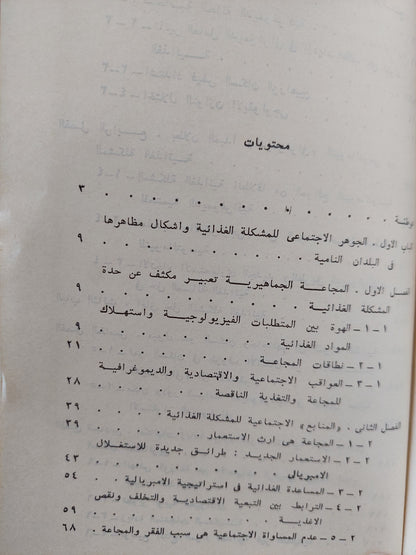 محتويات
توطئة . . . . . . . . . . ٣
الباب الاول . الجوهر الاجتماعى للمشكلة الغذائية واشكال مظاهرها
فى البلدان النامية . . . . . . . . . ٩
الفصل الاول . المجاعة الجماهيرية تعبير مكثف عن حدة
المشكلة الغذائية . . . . . . . . . ٩
١-١- الهوة بين المتطلبات الفيزيولوجية واستهلاك
المواد الغذائية . . . . . . . . . ٩
١-٢- نطاقات المجاعة . . . . . . . . ٢١
١-٣- العواقب الاجتماعية والاقتصادية والديموغرافية
للمجاعة والتغذية الناقصة . . . . . . ٢٨
الفصل الثانى . «المنابع» الاجتماعية للمشكلة الغذائية . . ٣٩
٢-١- المجاعة هى ارث الاستعمار . . . . . ٣٩
٢-٢- الاستعمار الجديد : طرائق جديدة للاستغلال
الامبريالى . . . . . . . . . ٤٣
٢-٣- المساعدة الغذائية فى استراتيجية الامبريالية . ٥٤
٢-٤- الترابط بين التبعية الاقتصادية والتخلف ونقص
الاغذية . . . . . . . . . ٥٩
٢-٥- عدم المساواة الاجتماعية هى سبب الفقر والمجاعة . ٦٨